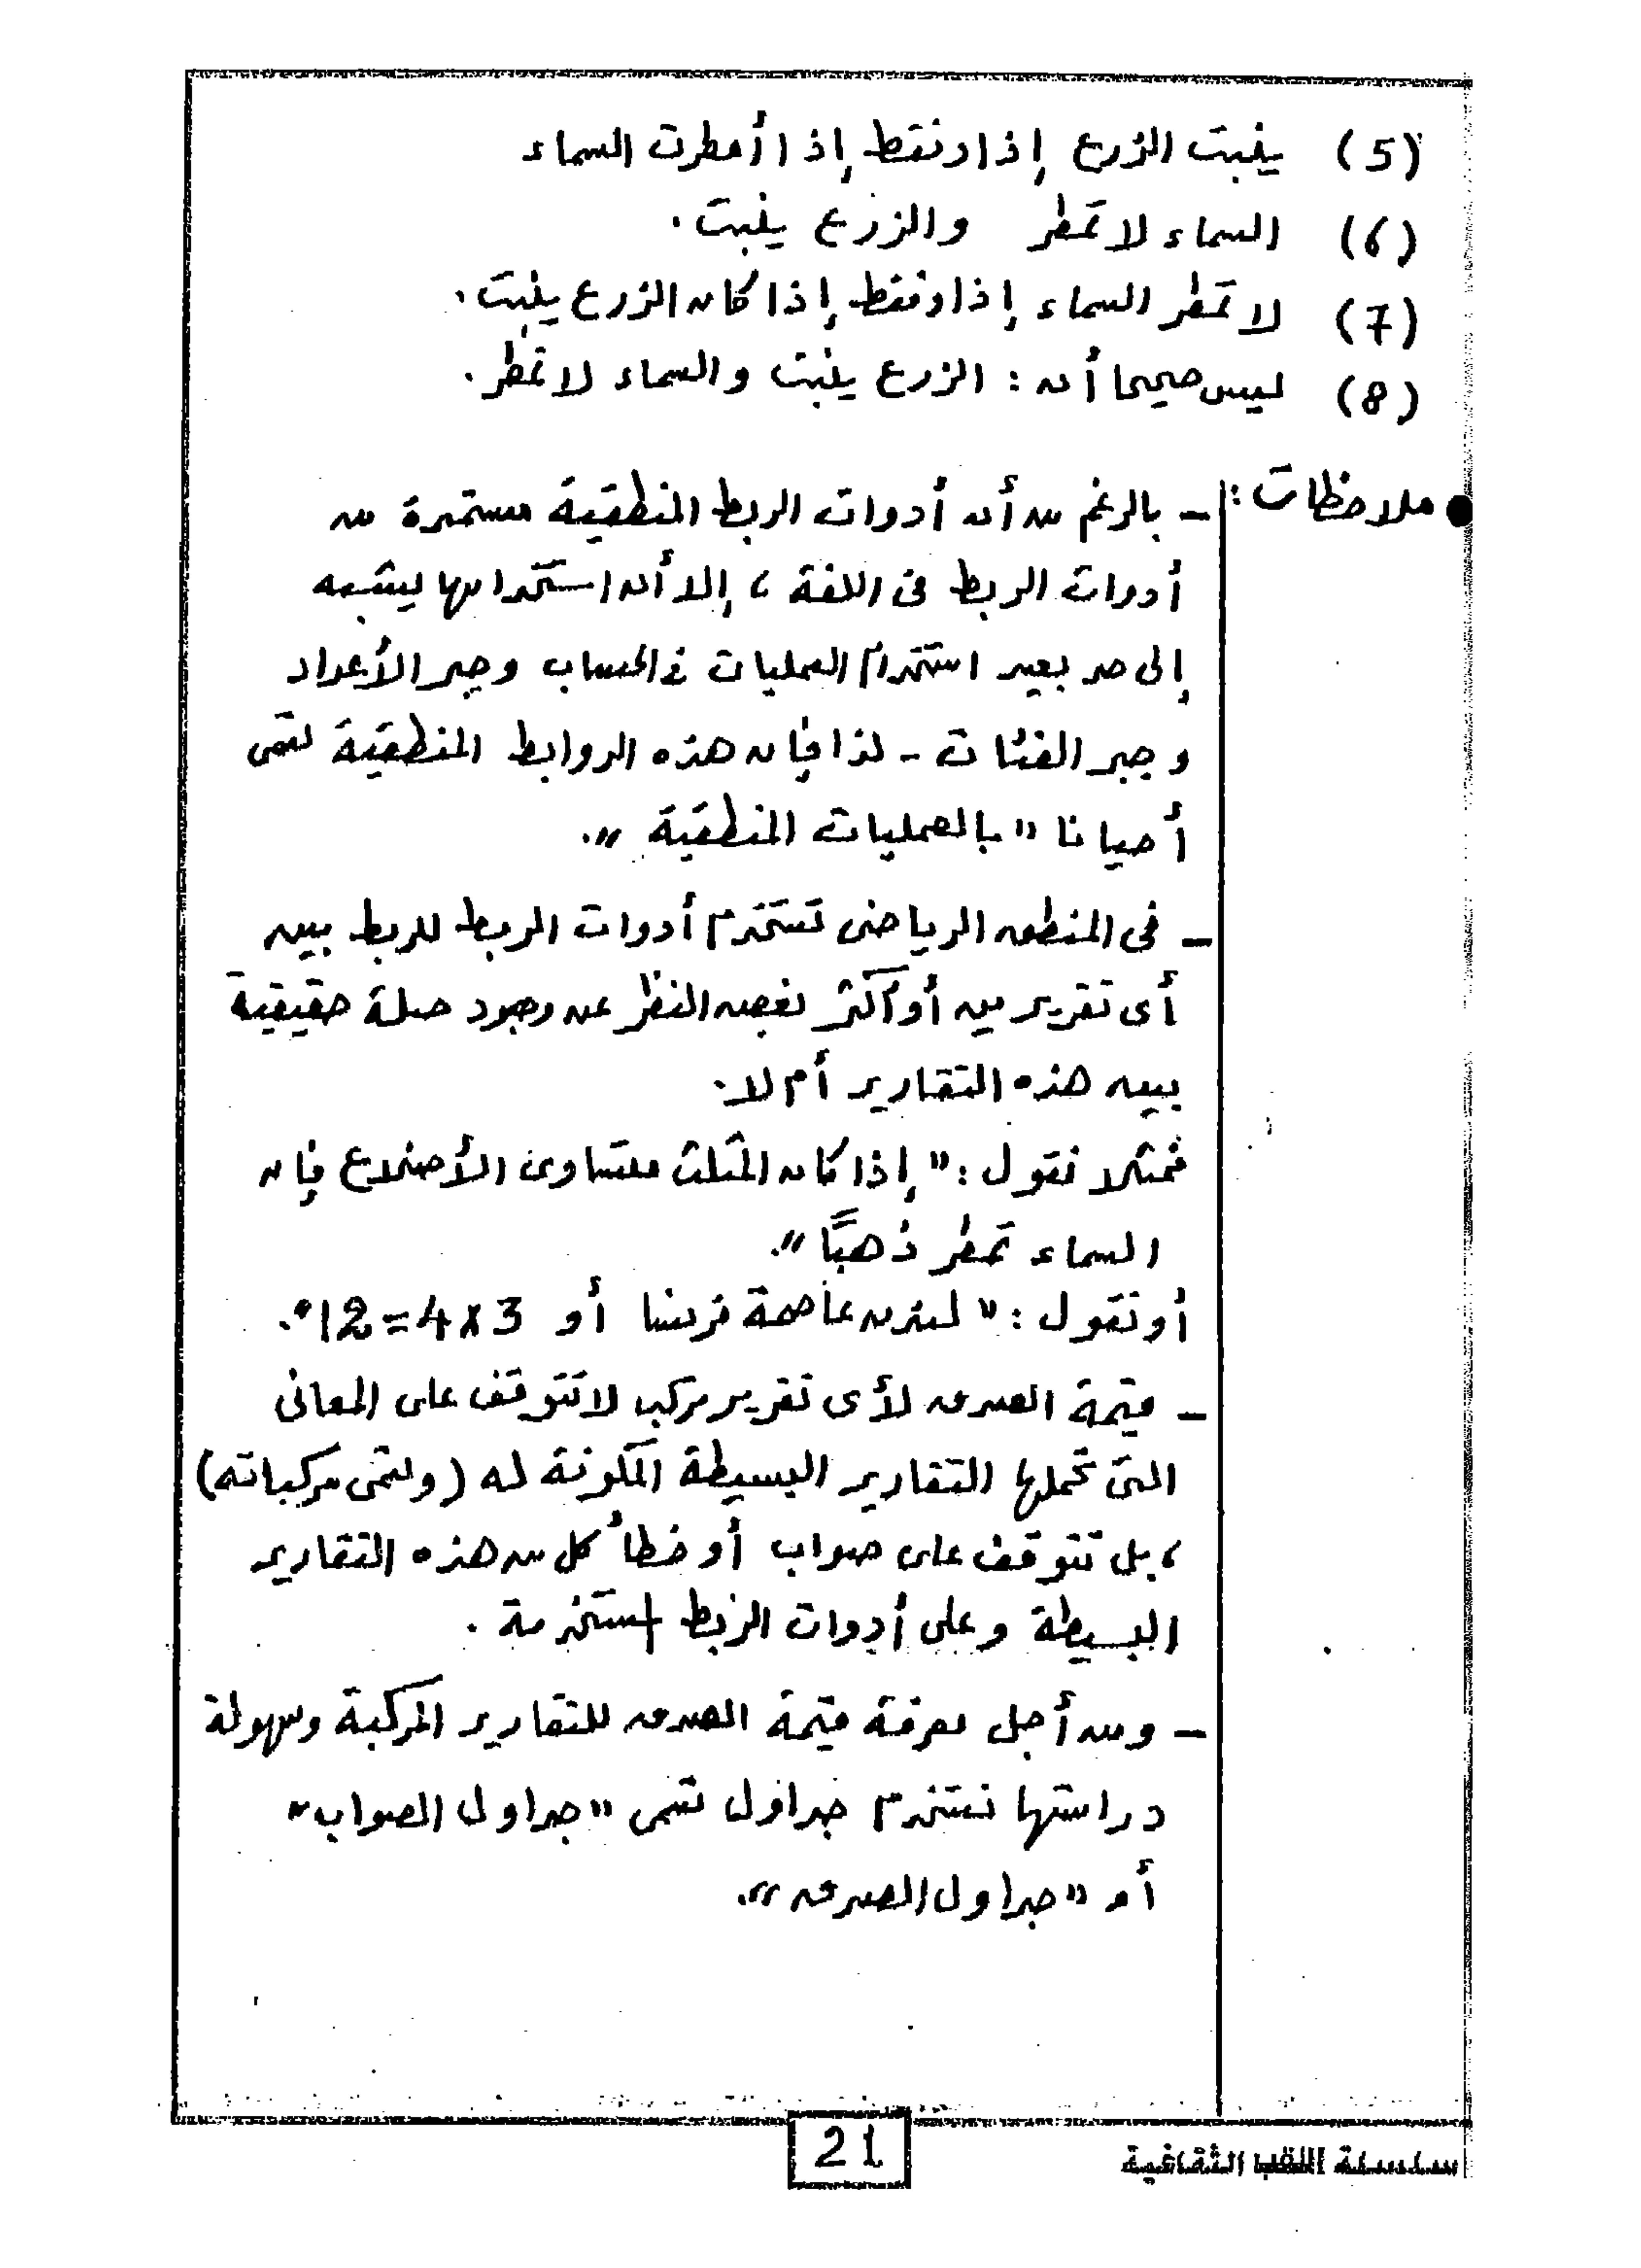 (5) ينبت الزرع إذا وفقط إذا أمطرت السماء
(6) السماء لا تمطر والزرع ينبت.
(7) لا تمطر السماء إذا وفقط إذا كان الزرع ينبت.
(8) ليس صحيحا أن : الزرع ينبت والسماء لا تمطر.
● ملاحظات : - بالرغم من أن أدوات الربط المنطقية مستمدة من
أدوات الربط فى اللغة ، إلا أن استخدامها يشبه
إلى حد بعيد استخدام العمليات فى الحساب وجبر الأعداد
وجبر الفئات - لذا فإن هذه الروابط المنطقية تسمى
أحيانا " بالعمليات المنطقية ".
- فى المنطق الرياضى تستخدم أدوات الربط للربط بين
أى تقريرين أو أكثر بغض النظر عن وجود صلة حقيقية
بين هذه التقارير أم لا.
فمثلا نقول : " إذا كان المثلث متساوى الأضلاع فإن
السماء تمطر ذهبًا ".
أو نقول : " لندن عاصمة فرنسا أو 3 x 4 = 12 ".
- قيمة الصدق لأى تقرير مركب لا تتوقف على المعانى
التى تحملها التقارير البسيطة المكونة له (وتسمى مركباته)
، بل تتوقف على صواب أو خطأ كل من هذه التقارير
البسيطة وعلى أدوات الربط المستخدمة .
- ومن أجل معرفة قيمة الصدق للتقارير المركبة وسهولة
دراستها نستخدم جداول تسمى " جداول الصواب "
أو " جداول الصدق ".
21
سلسلة الثقافية